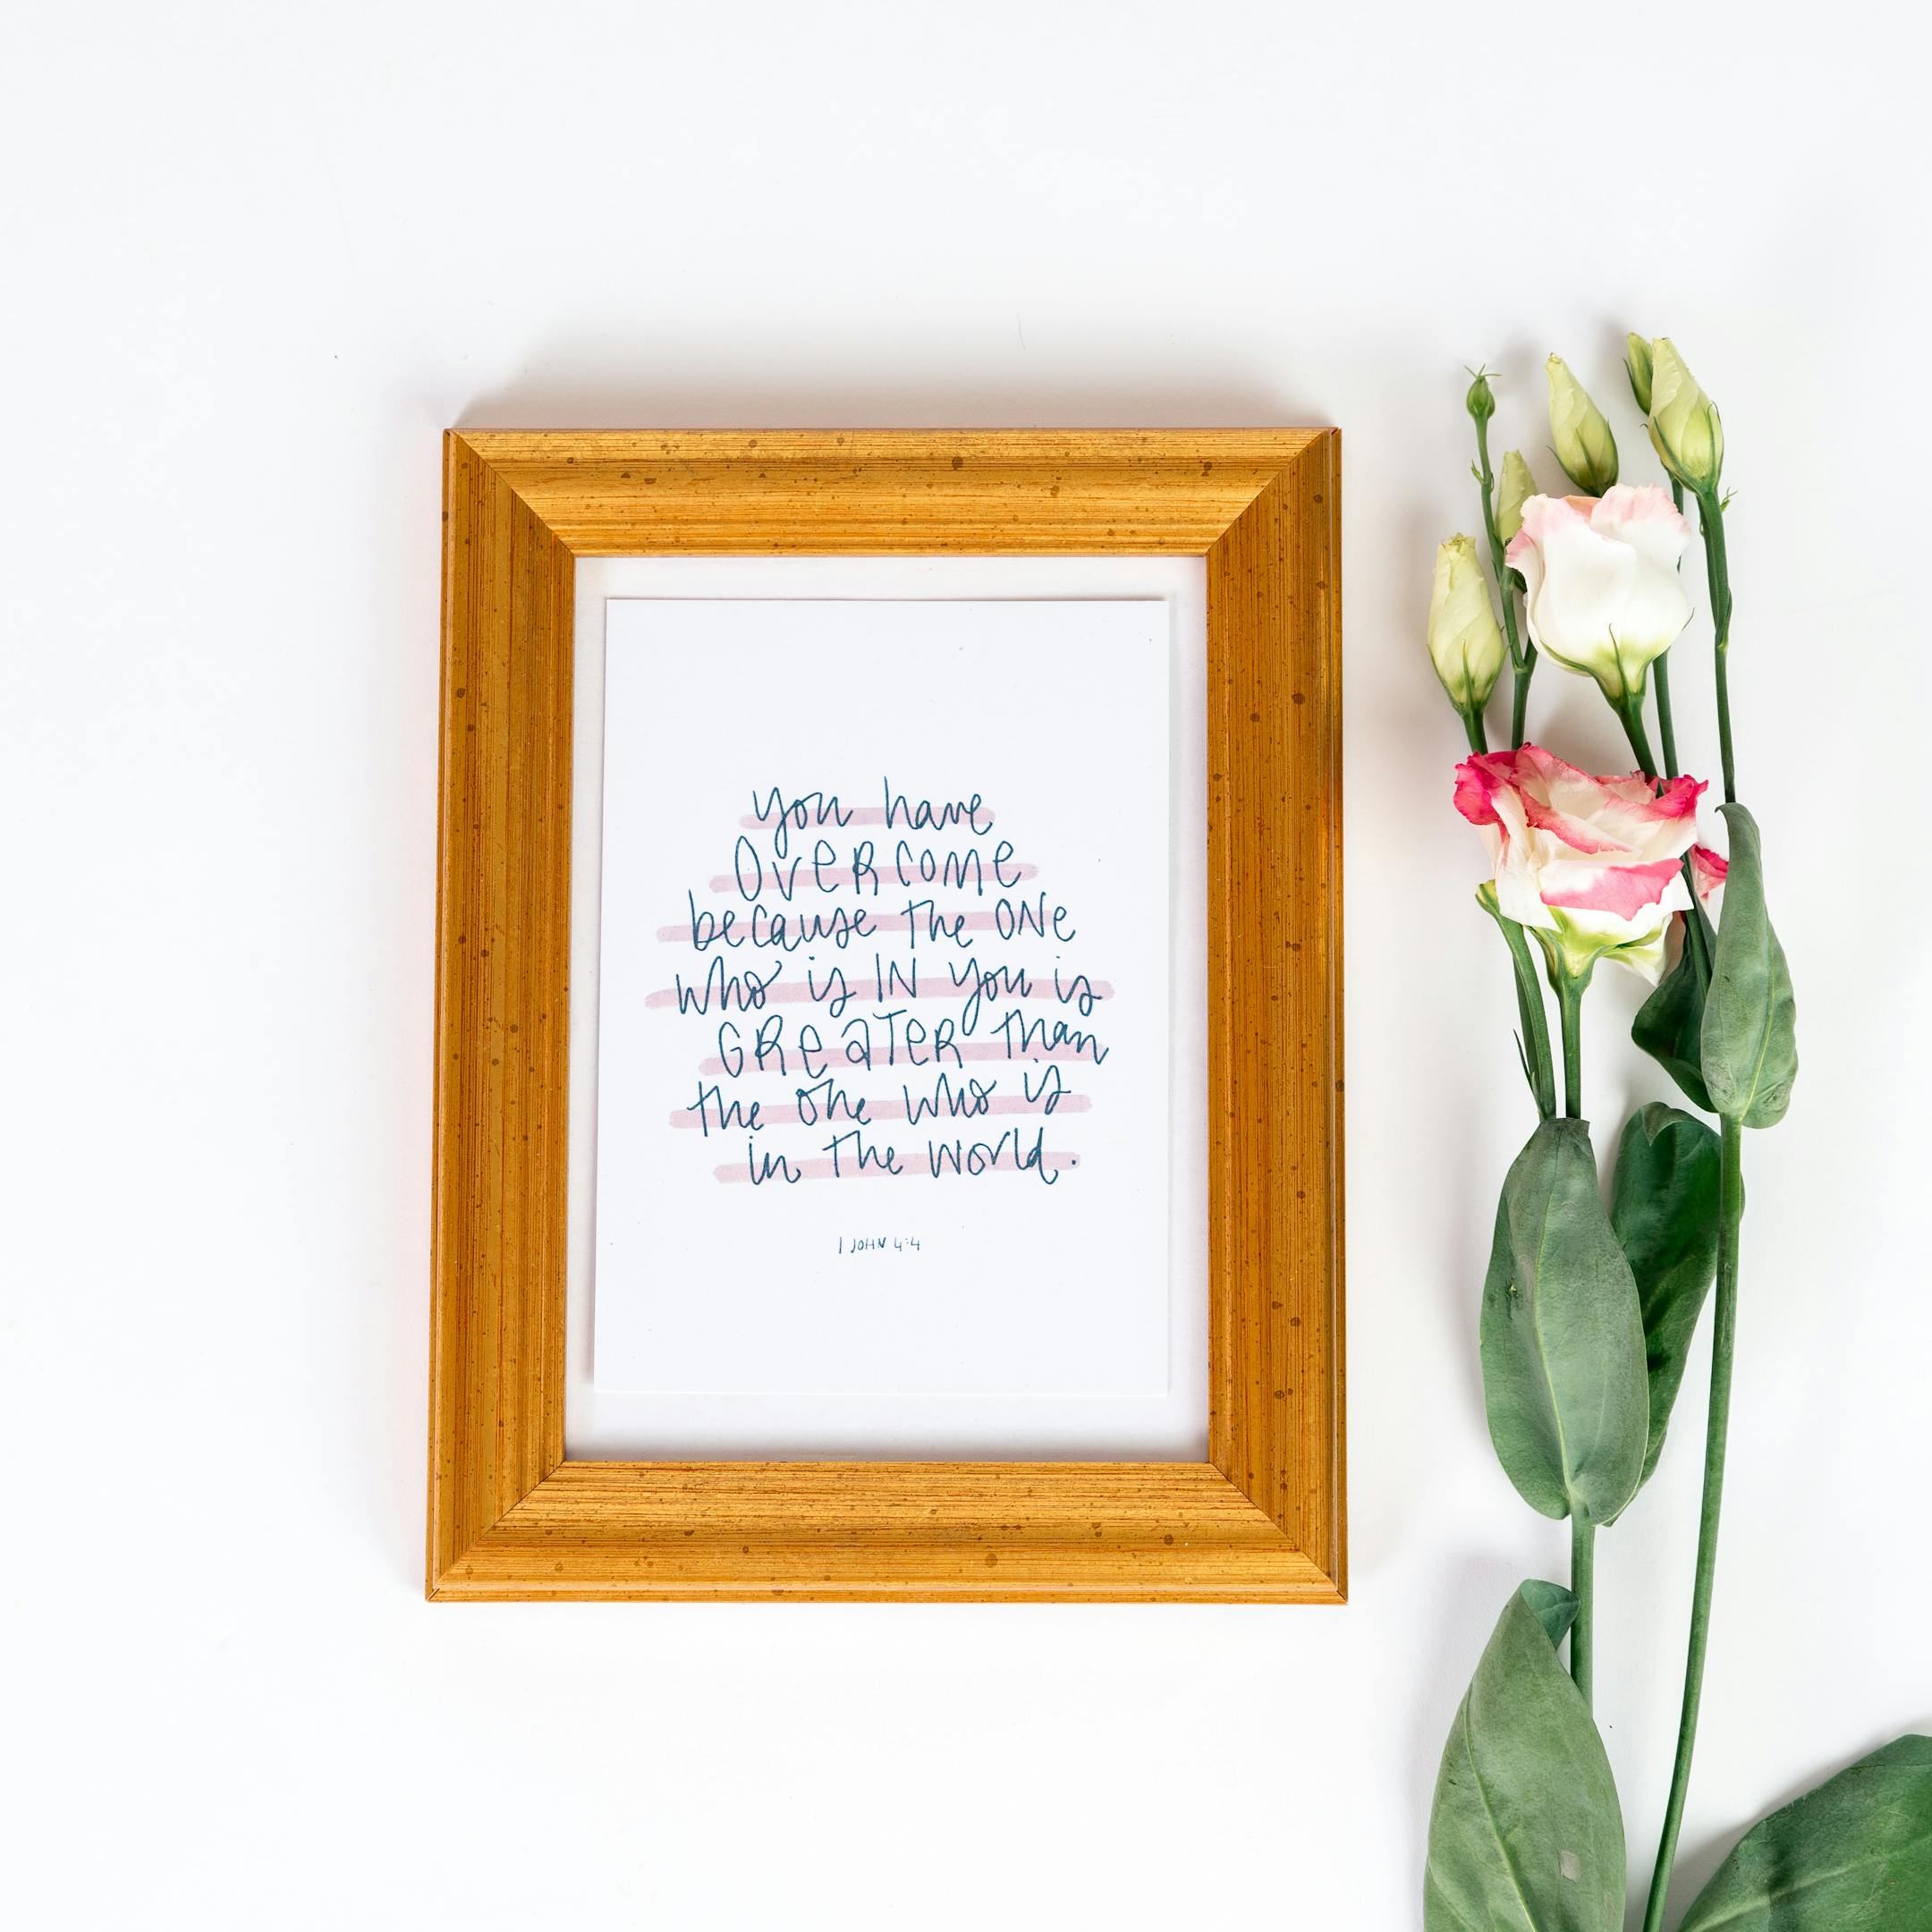 you have
OVERCOME
because the ONE
who is IN you is
GREATER than
the one who is
in the world.
1 JOHN 4:4